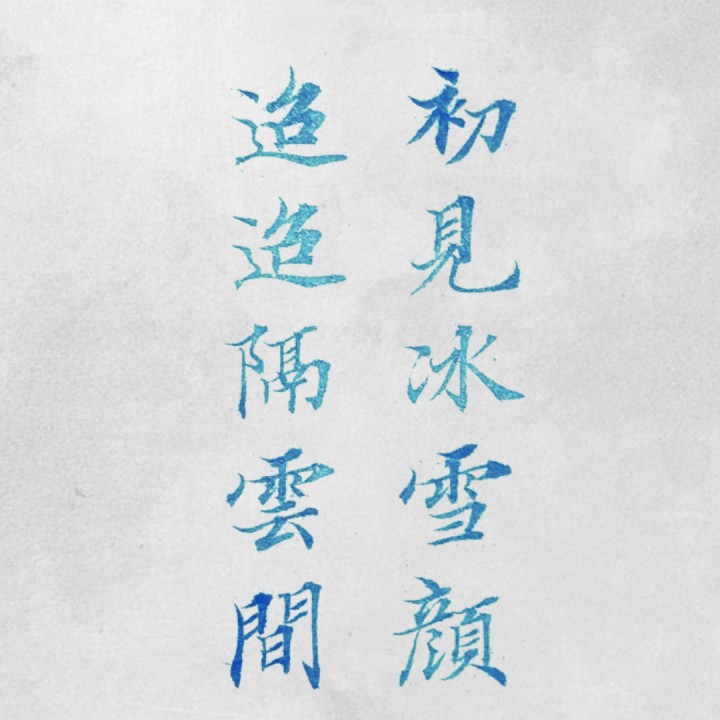 初見冰雪顔
迢迢隔雲間